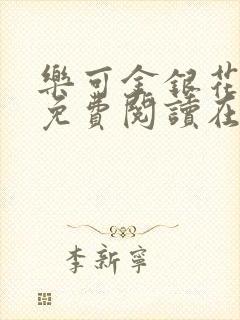 樂可金銀花
免費閱讀在
李新寧